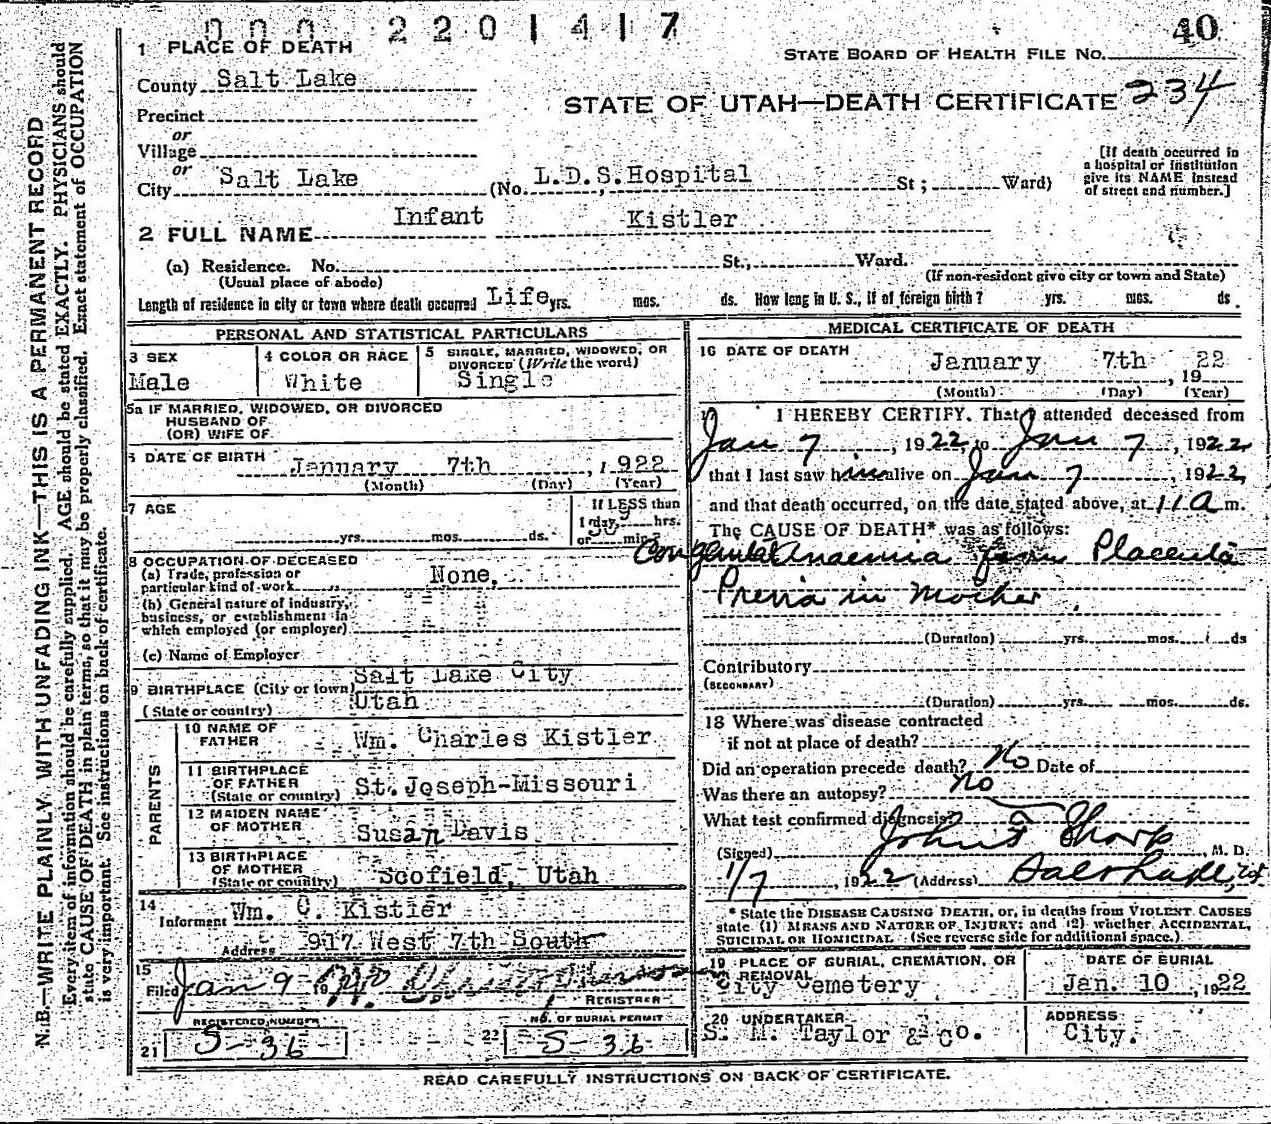 000 2201417
40
1 PLACE OF DEATH
STATE BOARD OF HEALTH FILE No.
County Salt Lake
STATE OF UTAH—DEATH CERTIFICATE 234
Precinct
or
Village
or
City Salt Lake (No. L.D.S.Hospital St ; Ward)
[If death occurred in
a hospital or institution
give its NAME instead
of street and number.]
2 FULL NAME Infant Kistler
(a) Residence. No. St., Ward.
(Usual place of abode) (If non-resident give city or town and State)
Length of residence in city or town where death occurred Life yrs. mos. ds. How long in U. S., if of foreign birth ? yrs. mos. ds.
PERSONAL AND STATISTICAL PARTICULARS
3 SEX
Male
4 COLOR OR RACE
White
5 SINGLE, MARRIED, WIDOWED, OR
DIVORCED (Write the word)
Single
5a IF MARRIED, WIDOWED, OR DIVORCED
HUSBAND OF
(OR) WIFE OF
6 DATE OF BIRTH January 7th , 1922
(Month) (Day) (Year)
7 AGE
yrs. mos. ds.
If LESS than
1 day, hrs.
or min.?
8 OCCUPATION OF DECEASED
(a) Trade, profession or
particular kind of work None.
(b) General nature of industry,
business, or establishment in
which employed (or employer)
(c) Name of Employer
9 BIRTHPLACE (City or town) Salt Lake City
(State or country) Utah
PARENTS
10 NAME OF
FATHER Wm. Charles Kistler
11 BIRTHPLACE
OF FATHER
(State or country) St.Joseph-Missouri
12 MAIDEN NAME
OF MOTHER Susan Davis
13 BIRTHPLACE
OF MOTHER
(State or country) Scofield, Utah
14
Informent Wm. C. Kistler
Address 917 West 7th South
15
Filed Jan 9
REGISTRER
REGISTERED NUMBER
21 S-36
No. OF BURIAL PERMIT
22 S-36
MEDICAL CERTIFICATE OF DEATH
16 DATE OF DEATH
January 7th , 1922
(Month) (Day) (Year)
17 I HEREBY CERTIFY, That I attended deceased from
Jan 7 , 1922, to Jan 7 , 1922
that I last saw him alive on Jan 7 , 1922
and that death occurred, on the date stated above, at 11 a m.
The CAUSE OF DEATH* was as follows:
Congenital Anaemia from Placenta
Previa in Mother
(Duration) yrs. mos. ds
Contributory
(SECONDARY)
(Duration) yrs. mos. ds.
18 Where was disease contracted
if not at place of death?
Did an operation precede death? No Date of
Was there an autopsy? No
What test confirmed diagnosis?
(Signed) John F Sharp , M. D.
1/7 , 1922 (Address) Salt Lake, Ut
* State the DISEASE CAUSING DEATH, or, in deaths from VIOLENT CAUSES
state (1) MEANS AND NATURE OF INJURY; and (2) whether ACCIDENTAL,
SUICIDAL OR HOMICIDAL. (See reverse side for additional space.)
19 PLACE OF BURIAL, CREMATION, OR
REMOVAL
City Cemetery
DATE OF BURIAL
Jan. 10 , 1922
20 UNDERTAKER
S. M. Taylor & Co.
ADDRESS
City.
READ CAREFULLY INSTRUCTIONS ON BACK OF CERTIFICATE.
N.B.—WRITE PLAINLY, WITH UNFADING INK—THIS IS A PERMANENT RECORD
Every item of information should be carefully supplied. AGE should be stated EXACTLY. PHYSICIANS should
state CAUSE OF DEATH in plain terms, so that it may be properly classified. Exact statement of OCCUPATION
is very important. See instructions on back of certificate.